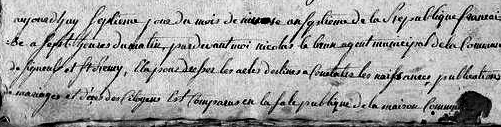 aujourdhuy septieme jour du mois de nivose an septieme de la Republique francai
se a sept heures du matin, par devant moi nicolas le brun agent municipal de la Commune
de et St Remy, Elu pour dresser les actes destinés a Constater les naissances, publication
de mariages et décés des Citoyens Est Comparus en la sale publique de la maison Commune